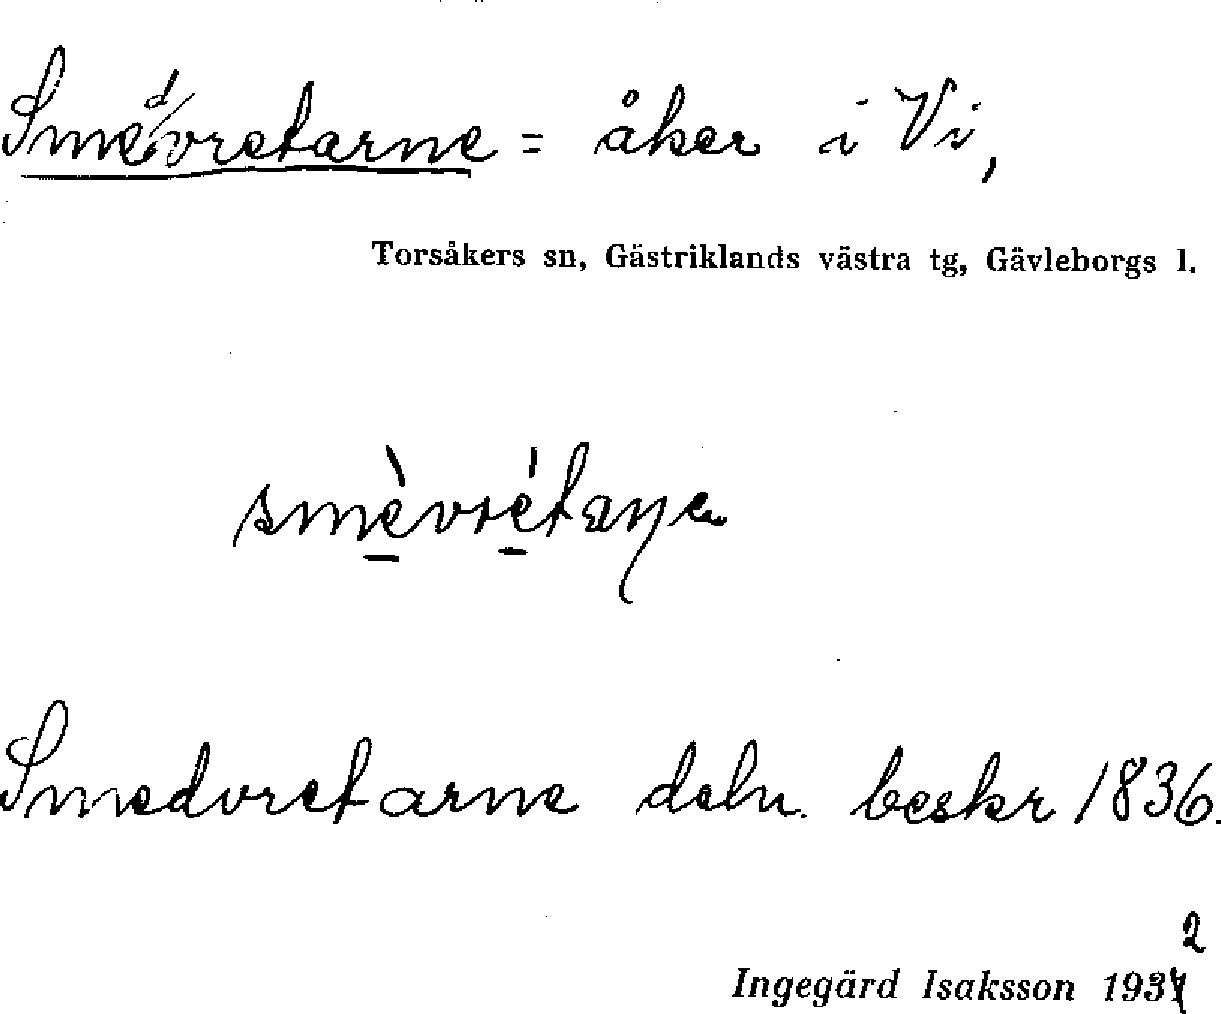 Smedvretarne = åker i Vi,
Torsåkers sn, Gästriklands västra tg, Gävleborgs l.
smèvrétaɳa
Smedvretarne deln. beskr 1836.
2
Ingegärd Isaksson 193